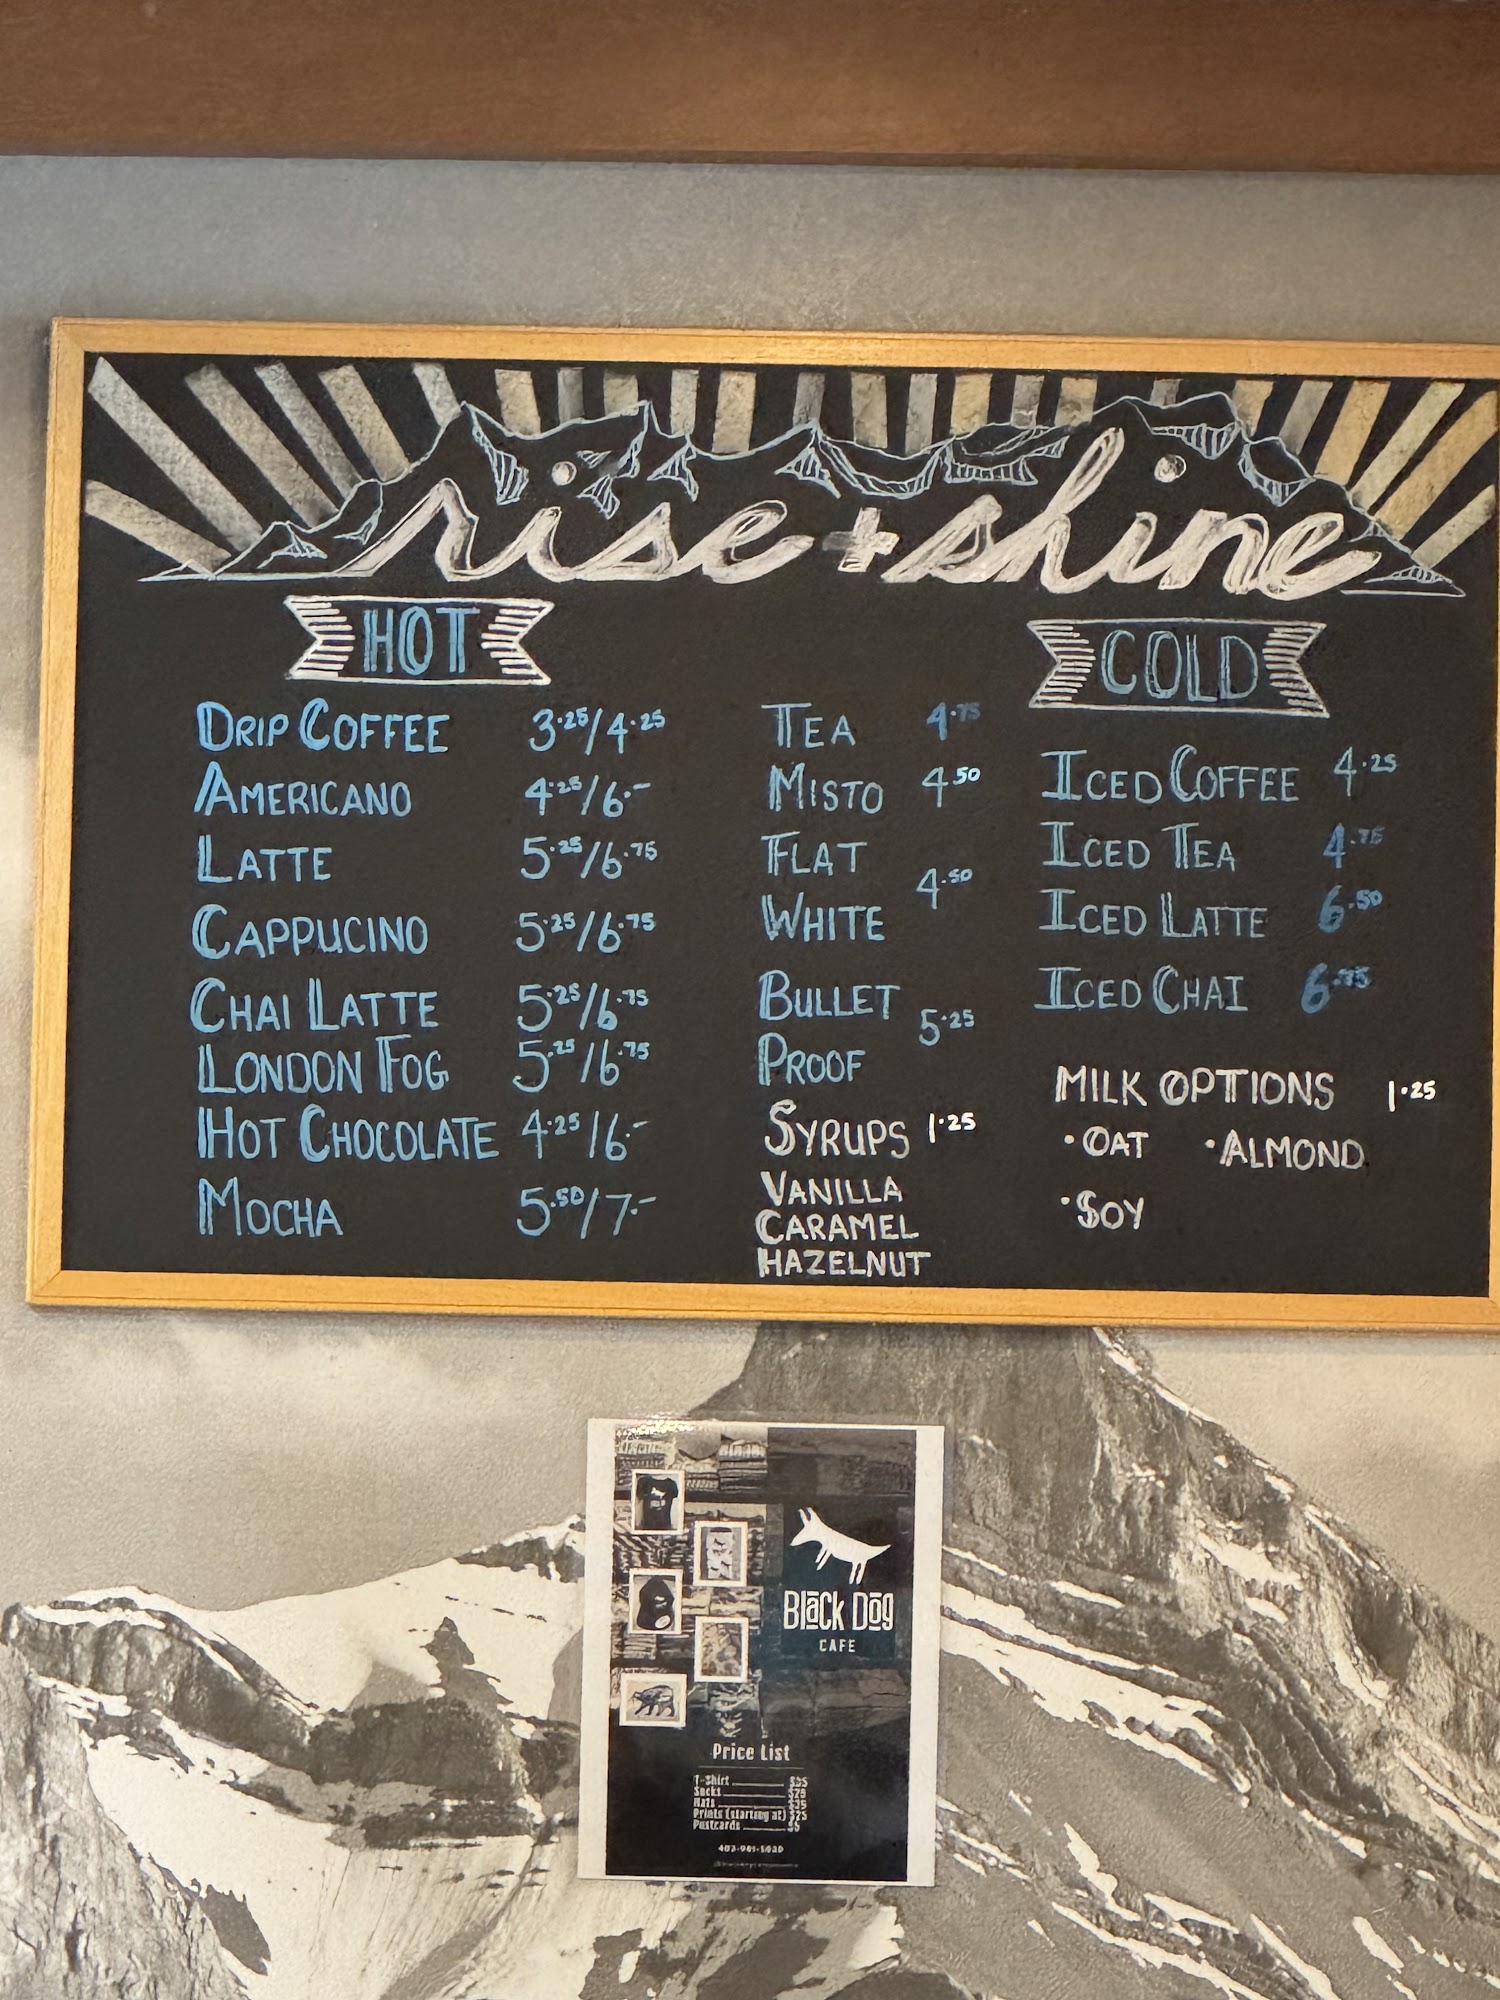 rise + shine
HOT
DRIP COFFEE 3.25/4.25
AMERICANO 4.25/6.-
LATTE 5.25/6.75
CAPPUCINO 5.25/6.75
CHAI LATTE 5.25/6.75
LONDON FOG 5.25/6.75
HOT CHOCOLATE 4.25/6.-
MOCHA 5.50/7.-
TEA 4.75
MISTO 4.50
FLAT
WHITE 4.50
BULLET
PROOF 5.25
SYRUPS 1.25
VANILLA
CARAMEL
HAZELNUT
COLD
ICED COFFEE 4.25
ICED TEA 4.75
ICED LATTE 6.50
ICED CHAI 6.75
MILK OPTIONS 1.25
• OAT • ALMOND
• SOY
BLaCK DOg
CAFE
Price List
T-Shirt
Socks
Hats
Prints (starting at) $25
Postcards $5